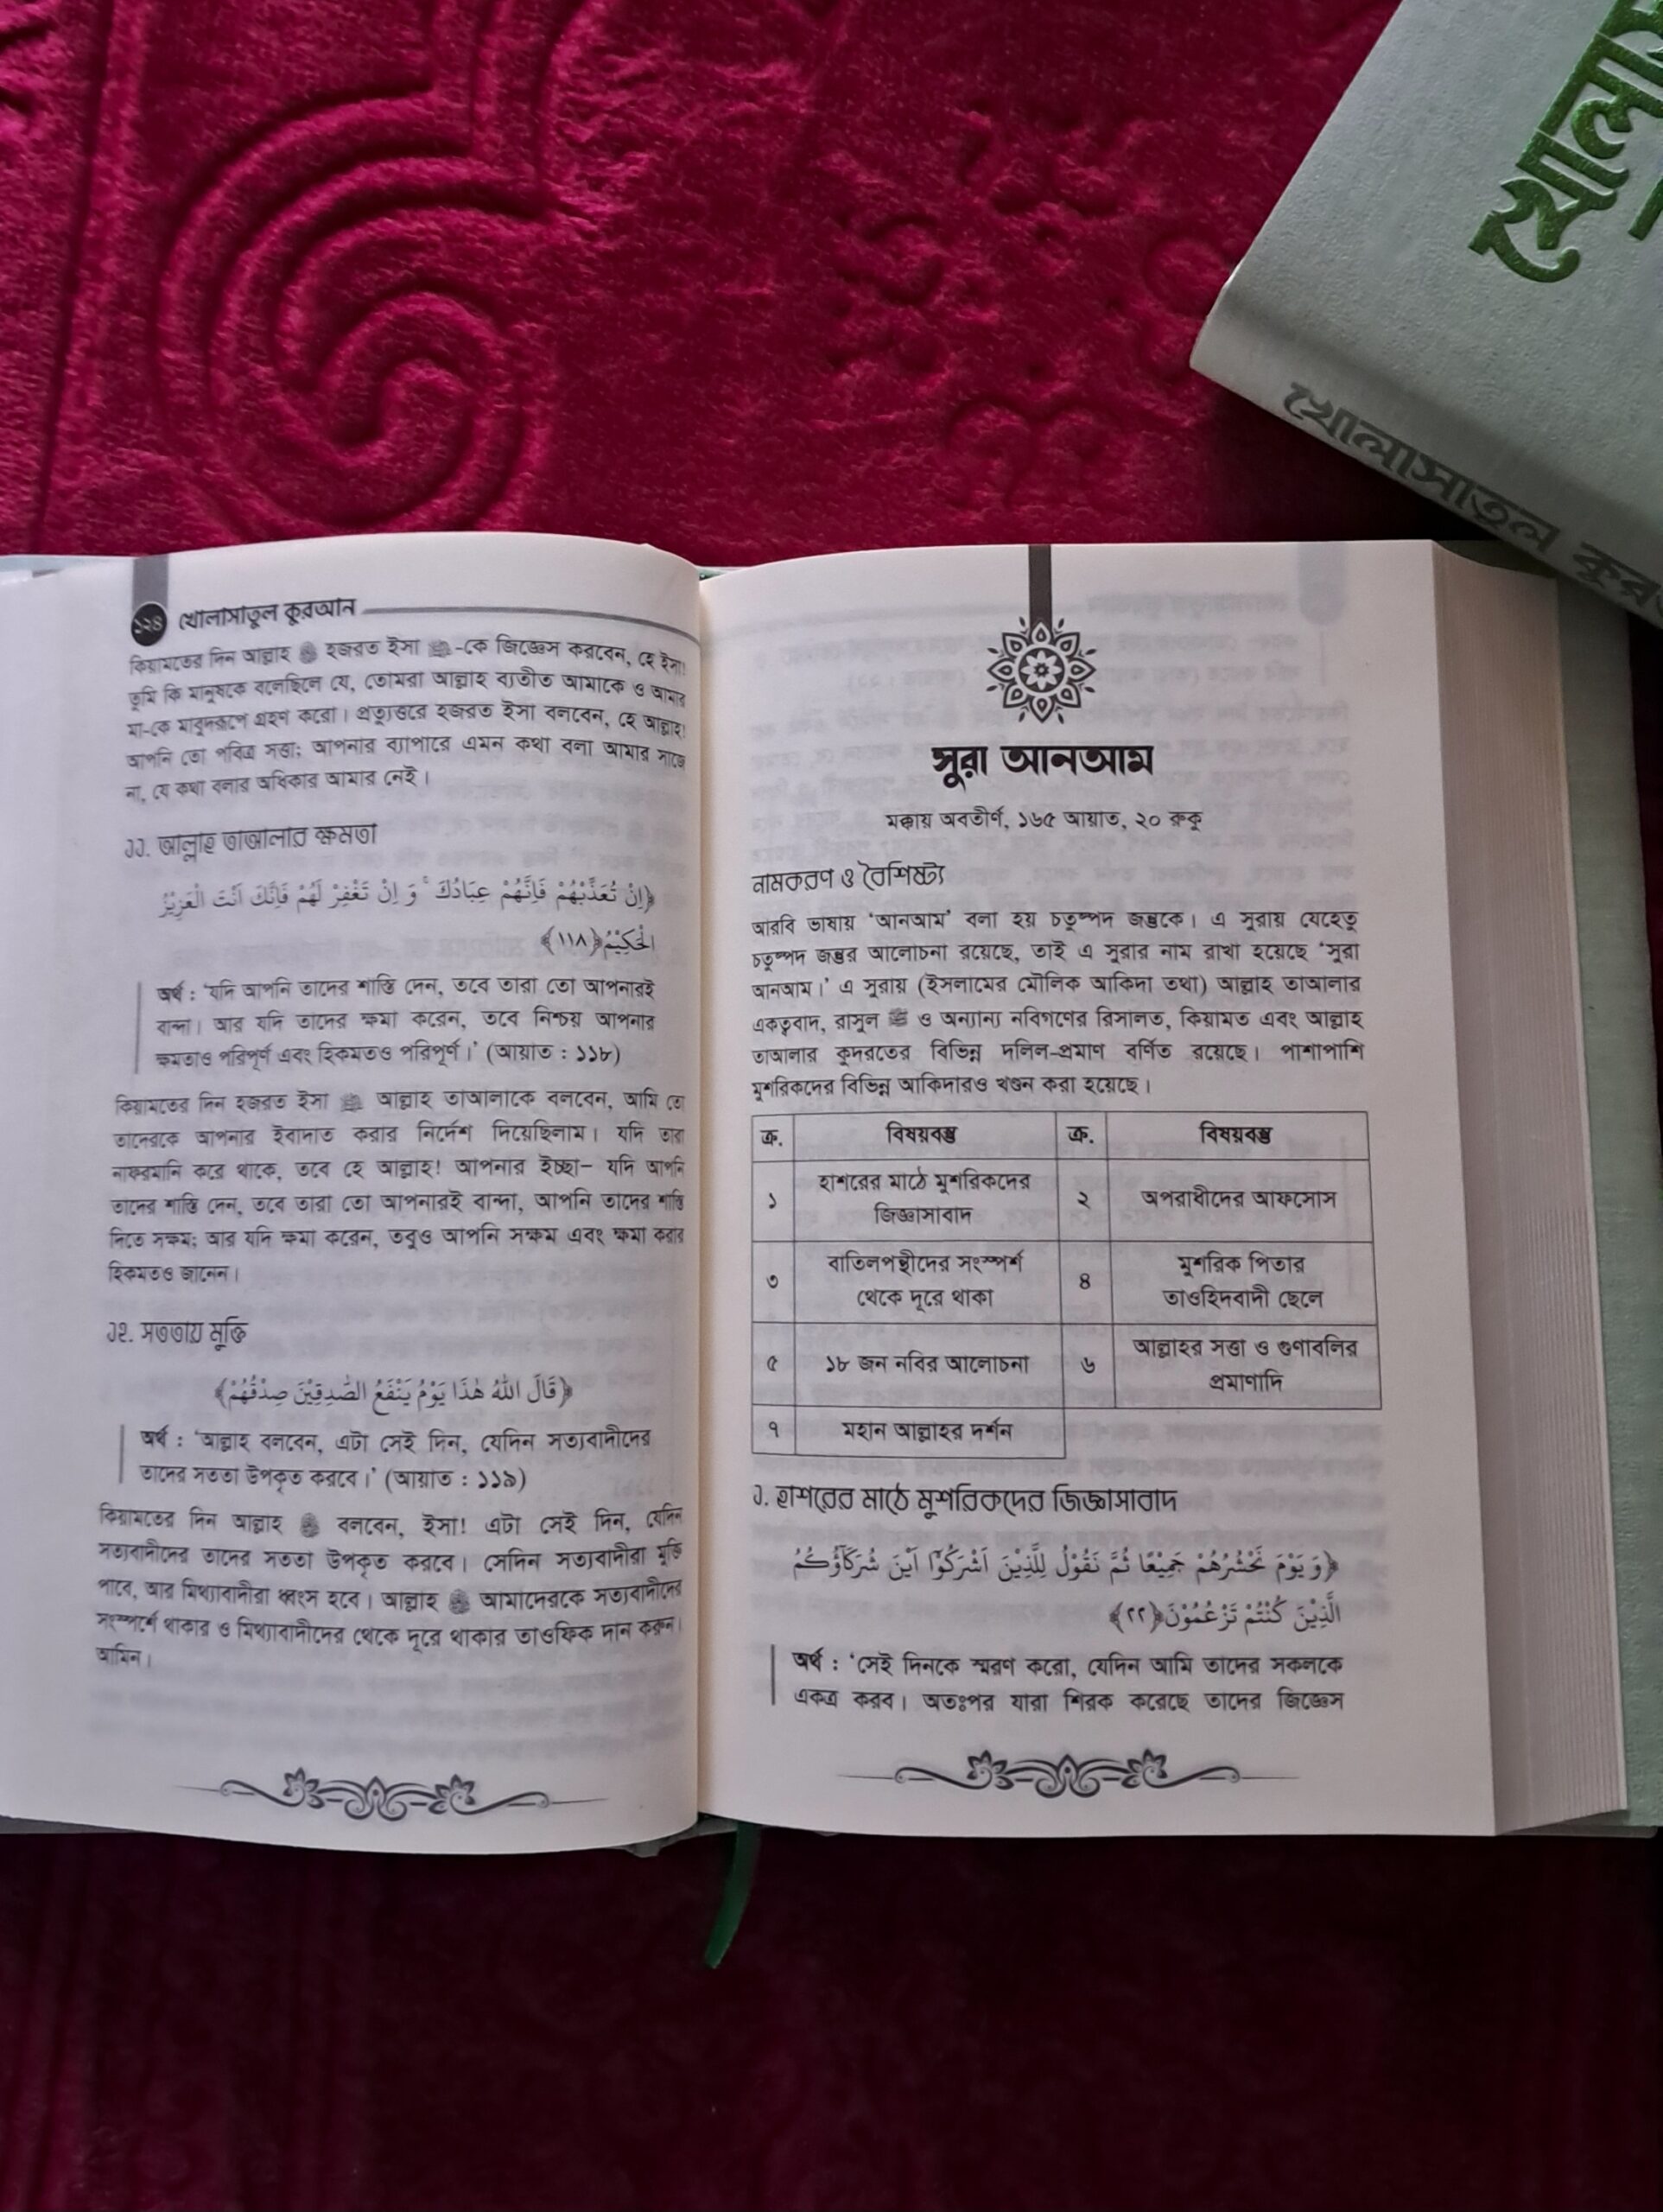 ১২৪ খোলাসাতুল কুরআন
কিয়ামতের দিন আল্লাহ হজরত ইসা -কে জিজ্ঞেস করবেন, হে ইসা!
তুমি কি মানুষকে বলেছিলে যে, তোমরা আল্লাহ ব্যতীত আমাকে ও আমার
মা-কে মাবুদরূপে গ্রহণ করো। প্রত্যুত্তরে হজরত ইসা বলবেন, হে আল্লাহ!
আপনি তো পবিত্র সত্তা; আপনার ব্যাপারে এমন কথা বলা আমার সাজে
না, যে কথা বলার অধিকার আমার নেই।
১১. আল্লাহ তাআলার ক্ষমতা
﴿اِنْ تُعَذِّبْهُمْ فَاِنَّهُمْ عِبَادُكَ ۚ وَ اِنْ تَغْفِرْ لَهُمْ فَاِنَّكَ اَنْتَ الْعَزِيْزُ
الْحَكِيْمُ﴿١١٨﴾
অর্থ : ‘যদি আপনি তাদের শাস্তি দেন, তবে তারা তো আপনারই
বান্দা। আর যদি তাদের ক্ষমা করেন, তবে নিশ্চয় আপনার
ক্ষমতাও পরিপূর্ণ এবং হিকমতও পরিপূর্ণ।’ (আয়াত : ১১৮)
কিয়ামতের দিন হজরত ইসা আল্লাহ তাআলাকে বলবেন, আমি তো
তাদেরকে আপনার ইবাদাত করার নির্দেশ দিয়েছিলাম। যদি তারা
নাফরমানি করে থাকে, তবে হে আল্লাহ! আপনার ইচ্ছা– যদি আপনি
তাদের শাস্তি দেন, তবে তারা তো আপনারই বান্দা, আপনি তাদের শাস্তি
দিতে সক্ষম; আর যদি ক্ষমা করেন, তবুও আপনি সক্ষম এবং ক্ষমা করার
হিকমতও জানেন।
১২. সততায় মুক্তি
﴿قَالَ اللّٰهُ هٰذَا يَوْمُ يَنْفَعُ الصّٰدِقِيْنَ صِدْقُهُمْ﴾
অর্থ : ‘আল্লাহ বলবেন, এটা সেই দিন, যেদিন সত্যবাদীদের
তাদের সততা উপকৃত করবে।’ (আয়াত : ১১৯)
কিয়ামতের দিন আল্লাহ বলবেন, ইসা! এটা সেই দিন, যেদিন
সত্যবাদীদের তাদের সততা উপকৃত করবে। সেদিন সত্যবাদীরা মুক্তি
পাবে, আর মিথ্যাবাদীরা ধ্বংস হবে। আল্লাহ আমাদেরকে সত্যবাদীদের
সংস্পর্শে থাকার ও মিথ্যাবাদীদের থেকে দূরে থাকার তাওফিক দান করুন।
আমিন।
সুরা আনআম
মক্কায় অবতীর্ণ, ১৬৫ আয়াত, ২০ রুকু
নামকরণ ও বৈশিষ্ট্য
আরবি ভাষায় ‘আনআম’ বলা হয় চতুষ্পদ জন্তুকে। এ সুরায় যেহেতু
চতুষ্পদ জন্তুর আলোচনা রয়েছে, তাই এ সুরার নাম রাখা হয়েছে ‘সুরা
আনআম।’ এ সুরায় (ইসলামের মৌলিক আকিদা তথা) আল্লাহ তাআলার
একত্ববাদ, রাসুল ﷺ ও অন্যান্য নবিগণের রিসালত, কিয়ামত এবং আল্লাহ
তাআলার কুদরতের বিভিন্ন দলিল-প্রমাণ বর্ণিত রয়েছে। পাশাপাশি
মুশরিকদের বিভিন্ন আকিদারও খণ্ডন করা হয়েছে।
ক্র. বিষয়বস্তু ক্র. বিষয়বস্তু
১ হাশরের মাঠে মুশরিকদের
জিজ্ঞাসাবাদ
২ অপরাধীদের আফসোস
৩ বাতিলপন্থীদের সংস্পর্শ
থেকে দূরে থাকা
৪ মুশরিক পিতার
তাওহিদবাদী ছেলে
৫ ১৮ জন নবির আলোচনা
৬ আল্লাহর সত্তা ও গুণাবলির
প্রমাণাদি
৭ মহান আল্লাহর দর্শন
১. হাশরের মাঠে মুশরিকদের জিজ্ঞাসাবাদ
﴿وَ يَوْمَ نَحْشُرُهُمْ جَمِيْعًا ثُمَّ نَقُوْلُ لِلَّذِيْنَ اَشْرَكُوْۤا اَيْنَ شُرَكَآؤُكُمُ
الَّذِيْنَ كُنْتُمْ تَزْعُمُوْنَ﴿٢٢﴾
অর্থ : ‘সেই দিনকে স্মরণ করো, যেদিন আমি তাদের সকলকে
একত্র করব। অতঃপর যারা শিরক করেছে তাদের জিজ্ঞেস
খোলাসাতুল